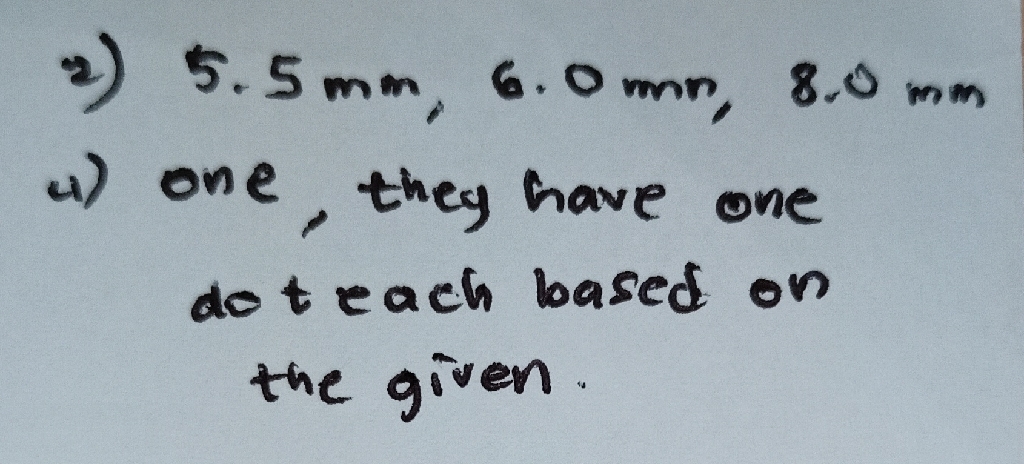 2) 5.5 mm, 6.0 mm, 8.0 mm
4) one, they have one
dot each based on
the given.